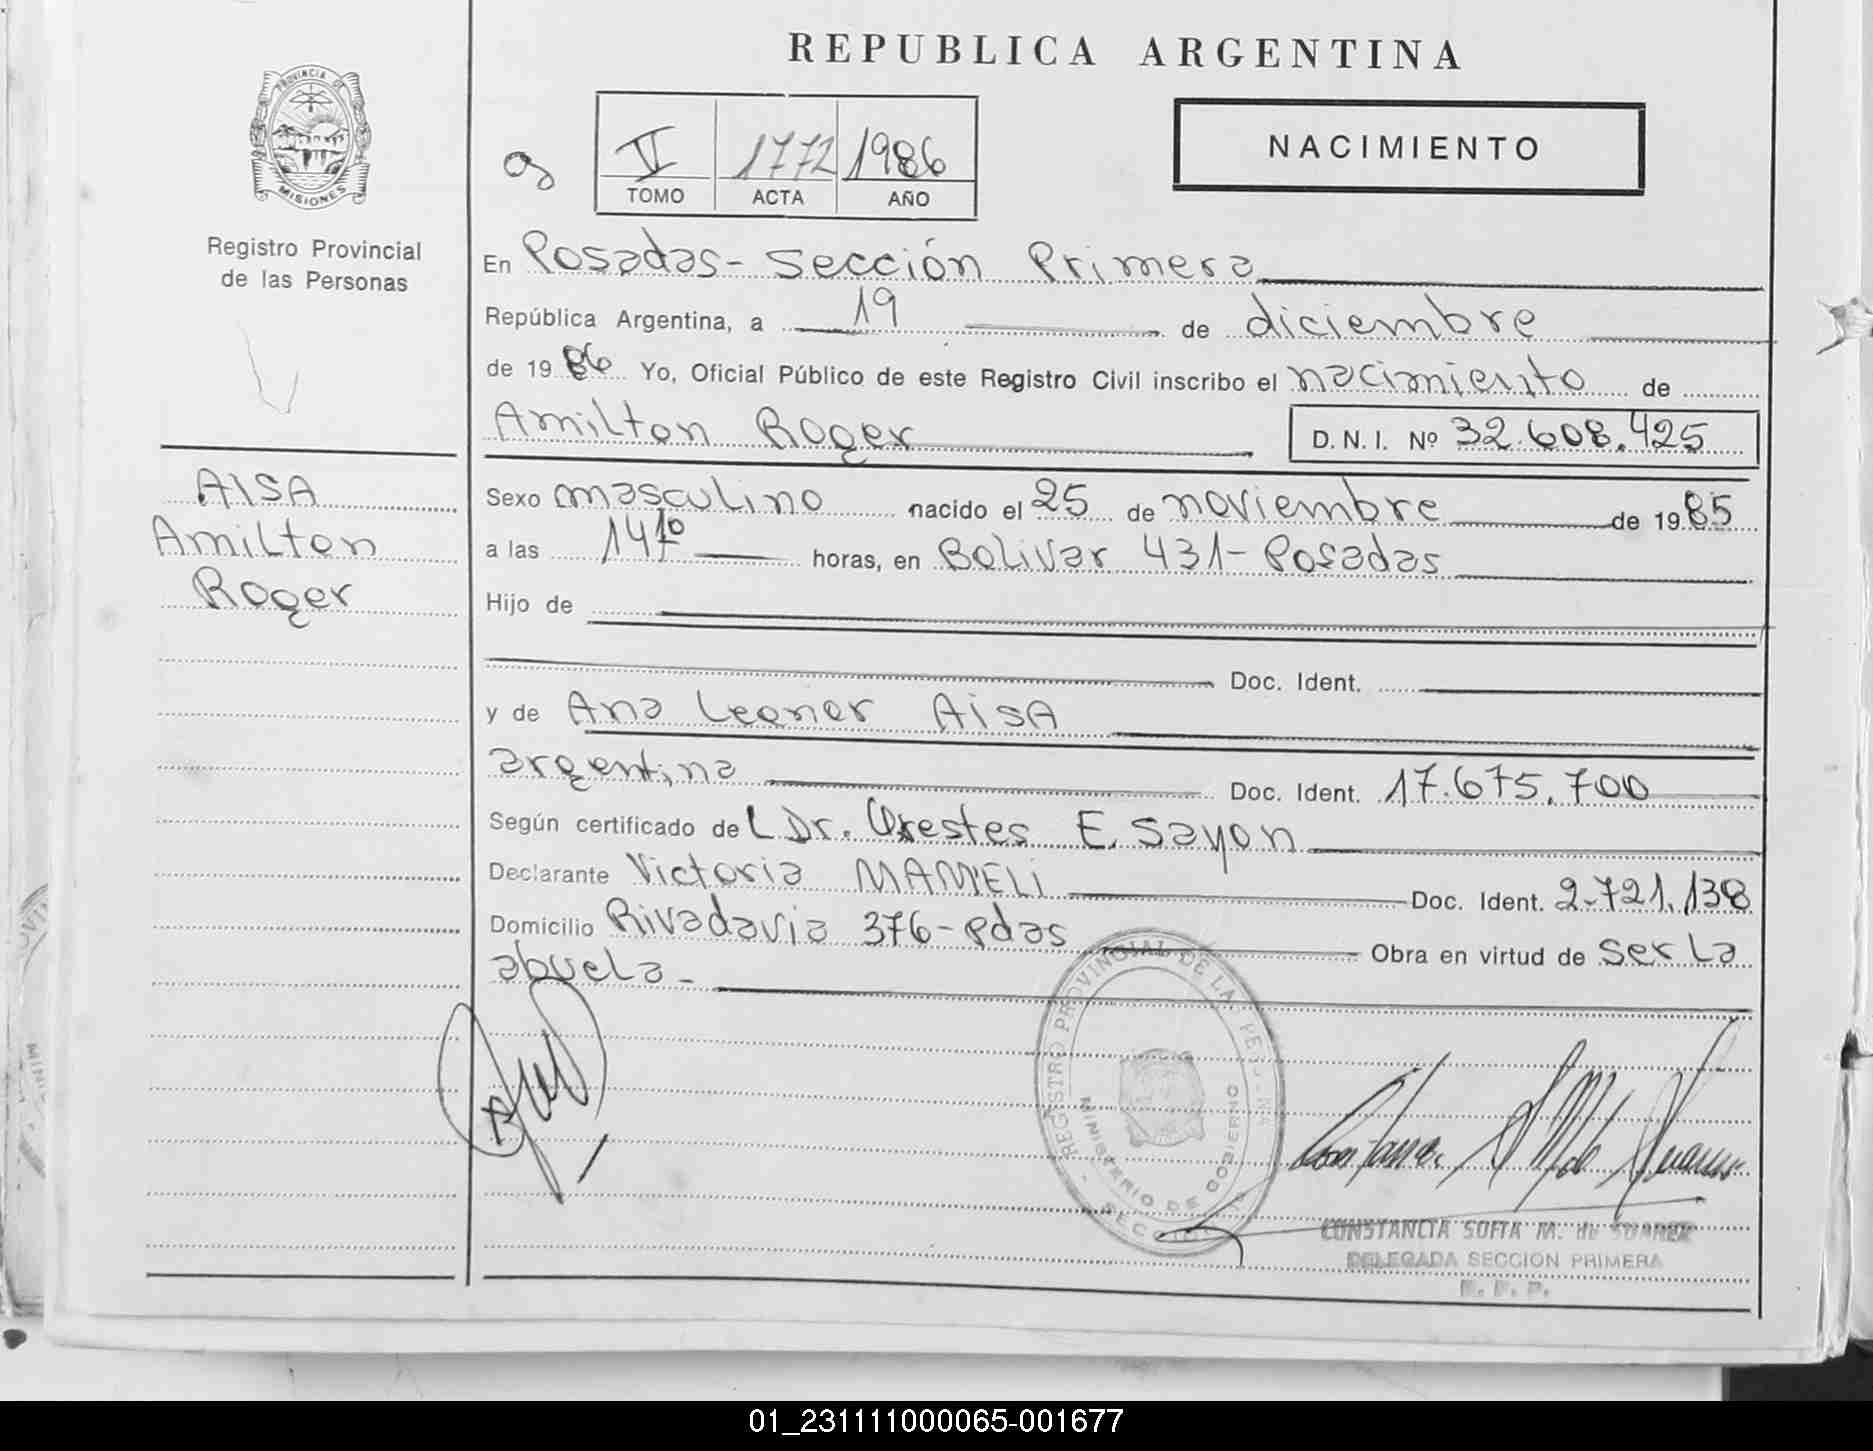 REPUBLICA ARGENTINA
PROVINCIA DE
MISIONES
Registro Provincial
de las Personas
V 1772 1986
TOMO ACTA AÑO
NACIMIENTO
En Posadas - Sección Primera
República Argentina, a 19 de diciembre
de 1986 Yo, Oficial Público de este Registro Civil inscribo el nacimiento de
Amilton Roger D.N.I. Nº 32.608.425
AISA
Amilton
Roger
Sexo masculino nacido el 25 de noviembre de 1985
a las 14 10 horas, en Bolivar 431 - Posadas
Hijo de
Doc. Ident.
y de Ana Leonor AisA
argentina Doc. Ident. 17.675.700
Según certificado de L Dr. Orestes E. Sayon
Declarante Victoria MAMELI Doc. Ident. 2.721.138
Domicilio Rivadavia 376 - Pdas Obra en virtud de ser la
abuela -
REGISTRO PROVINCIAL DE LAS PERSONAS
MINISTERIO DE GOBIERNO
CONSTANCIA SOFIA M. de SUAREZ
DELEGADA SECCION PRIMERA
01_231111000065-001677